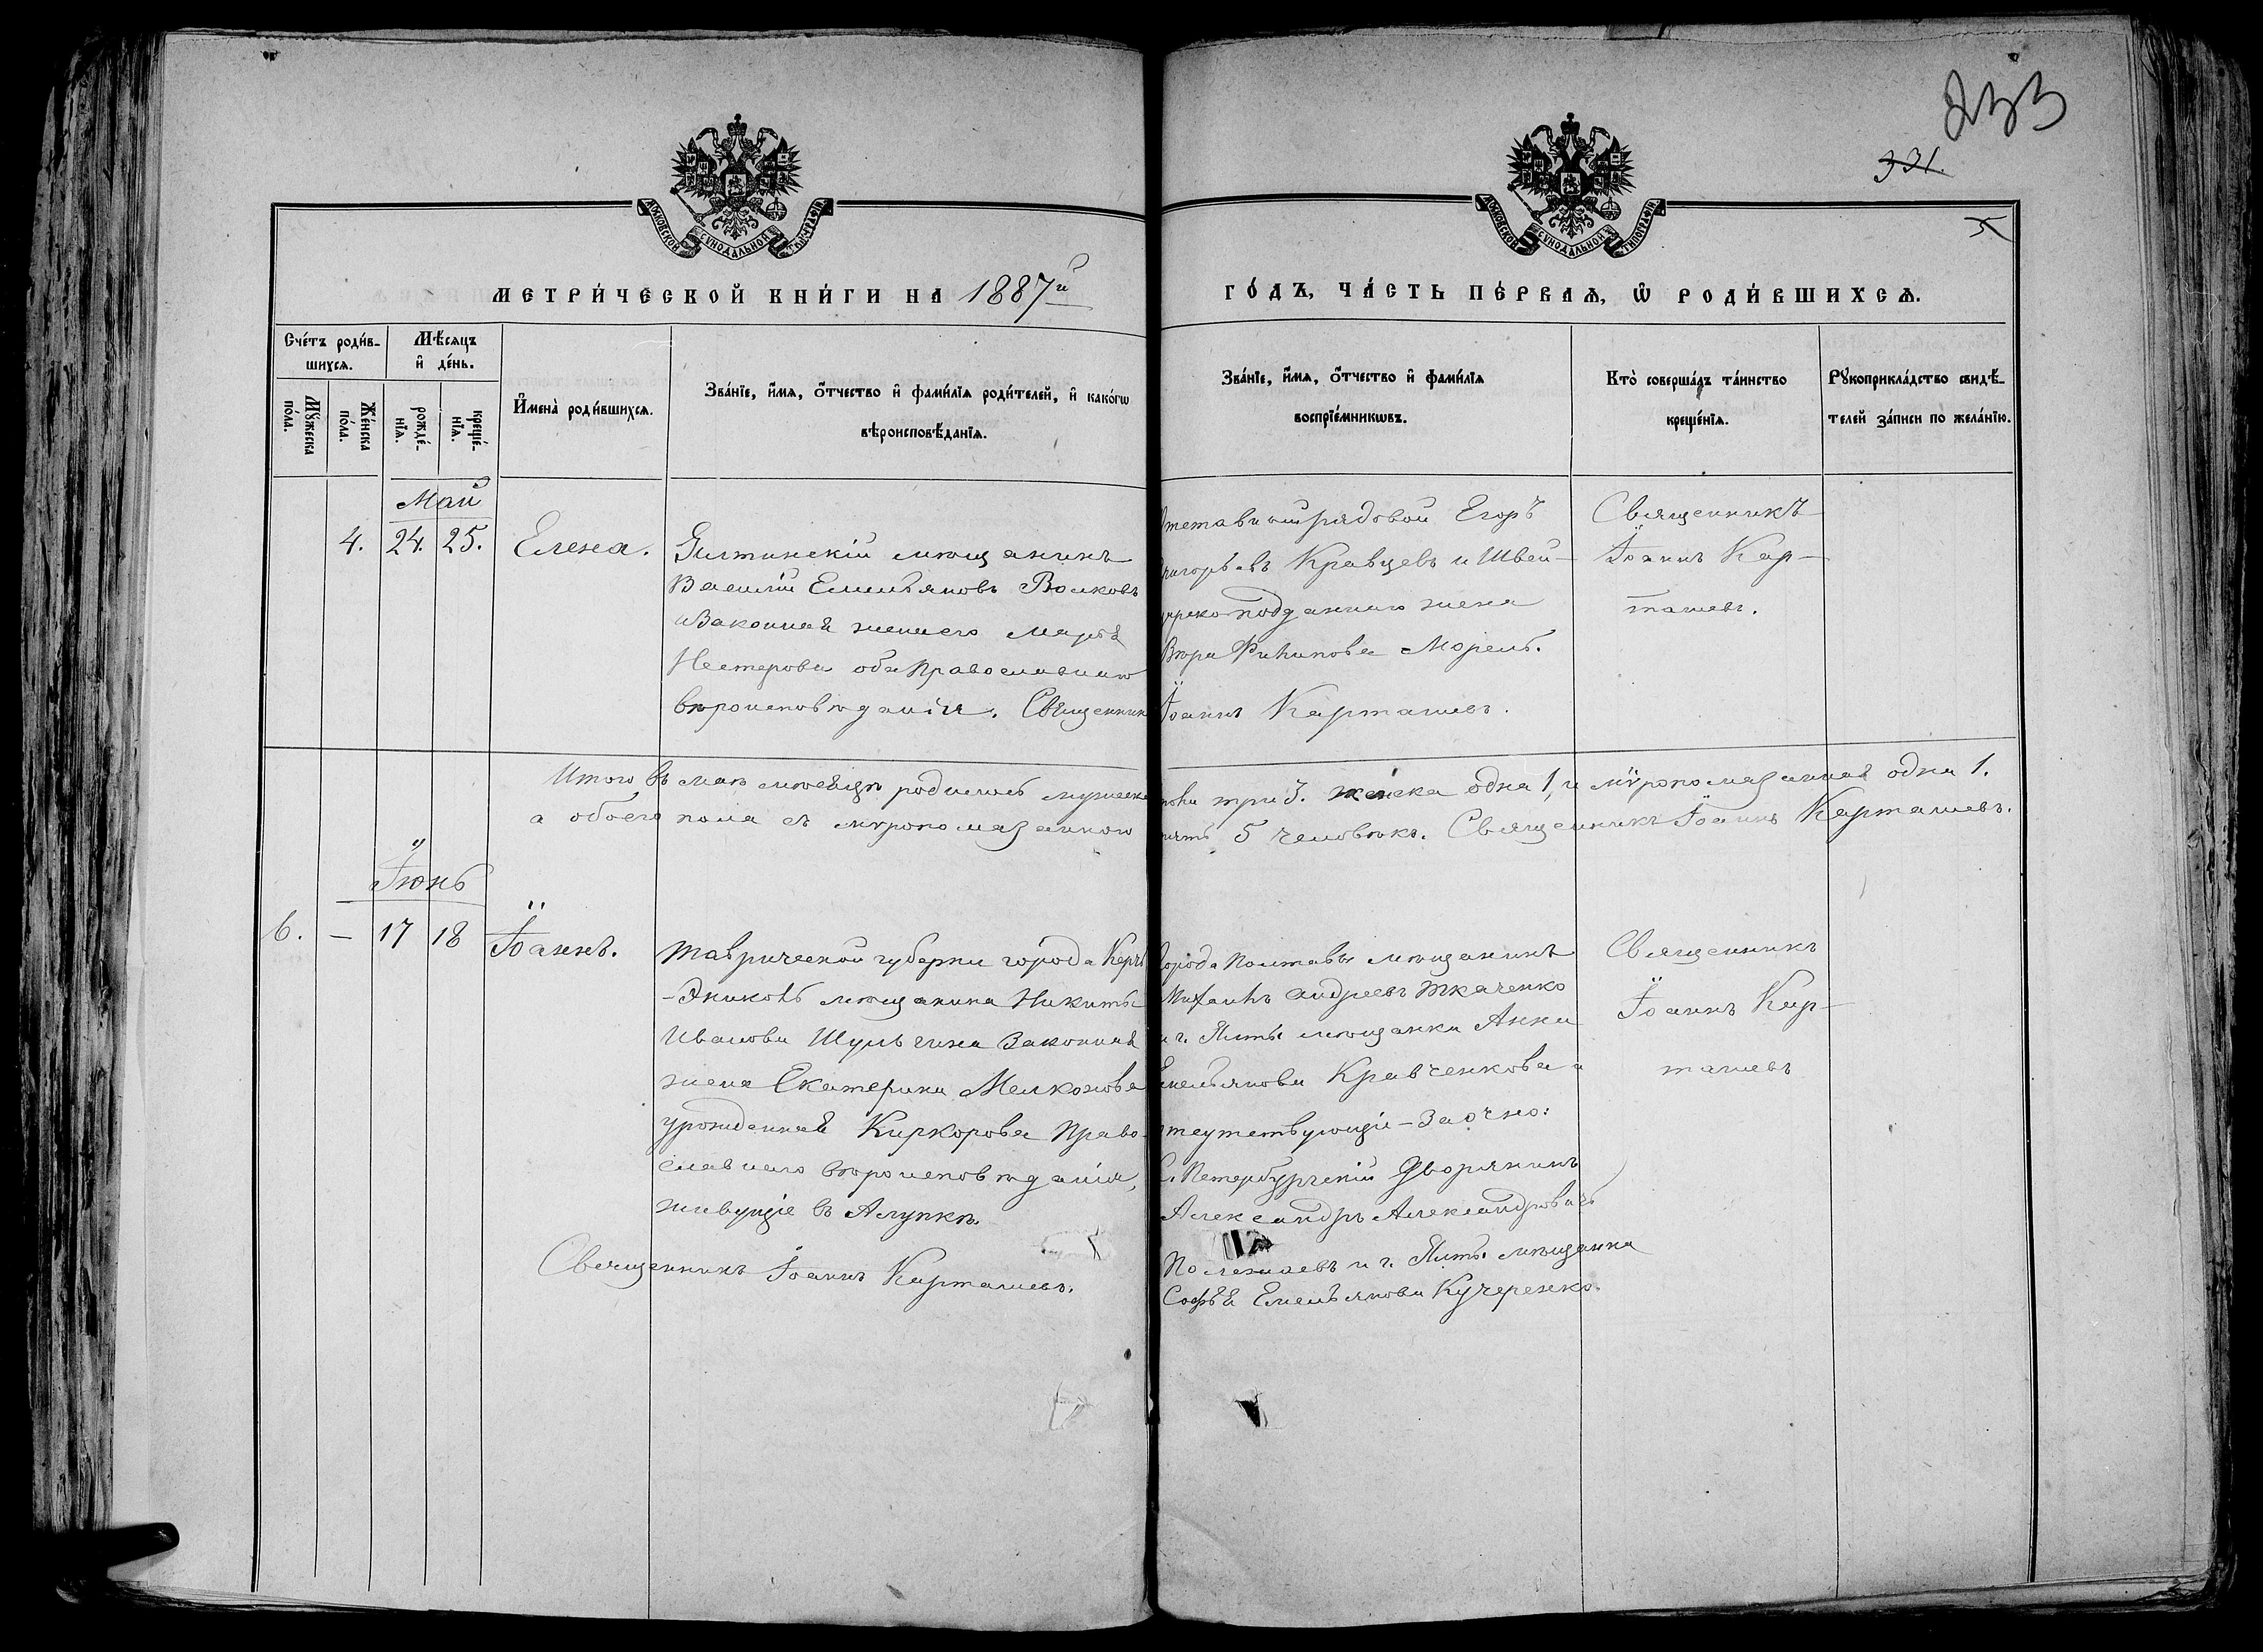 233
331.
5
МОСКОВСКОЙ СѴНОДАЛЬНОЙ ТИПОГРАФІИ
МОСКОВСКОЙ СѴНОДАЛЬНОЙ ТИПОГРАФІИ
МЕТРИ́ЧЕСКОЙ КНИ́ГИ НА 1887й
ГО́ДЪ, ЧА́СТЬ ПЕ́РВАѦ, Ѡ҆ РОДИ́ВШИХСѦ.
Сче́тъ роди́в-
шихсѧ.
Мѣ́сѧцъ
и҆ де́нь.
Мꙋ́жеска
по́ла.
Же́нска
по́ла.
рожде́-
нїѧ.
креще́-
нїѧ.
И҆мена̀ роди́вшихсѧ.
Зва́нїе, и҆́мѧ, ѻ҆́тчество и҆ фами́лїѧ роди́телей, и҆ како́гѡ
вѣроисповѣ́данїѧ.
Зва́нїе, и҆́мѧ, ѻ҆́тчество и҆ фами́лїѧ
воспрїе́мникѡвъ.
Кто̀ соверша́лъ та́инство
креще́нїѧ.
Рꙋкоприкла́дство свидѣ́-
телей за́писи по жела́нїю.
Май
4. 24. 25. Елена.
Ялтинскій мѣщанинъ
Василій Емильяновъ Волковъ
и Законная жена его Марѳа
Нестерова оба Православнаго
вѣроисповѣданія. Священник
Отставный рядовой Егоръ
Григорьевъ Кравцевъ и Швей-
царско-подданнаго жена
Вѣра Филипова Морель.
Іоаннъ Карташевъ.
Священникъ
Іоаннъ Кар-
ташевъ.
Итого въ маѣ мѣсяцѣ родилось мужеска пола три 3. женска одна 1, и мѵропомазанная одна 1.
а обоего пола съ мѵропомазанною пять 5 человѣкъ. Священникъ Іоаннъ Карташевъ.
Іюнь
6. — 17 18 Іоаннъ.
Таврической губерни города Керчь
-Эниколь мѣщанина Никиты
Иванова Шульгина Законная
жена Екатерина Мелконова
урожденная Киркорова Право-
славнаго вѣроисповѣданія,
живущіе въ Алупкѣ.
Священникъ Іоаннъ Карташевъ.
города Полтавы мѣщанинъ
Михаилъ Андреевъ Ткаченко
и г. Ялты мѣщанка Анна
Емельянова Кравченкова
Заочно:
С. Петербургскій Дворянинъ
Александръ Александровичъ
Полежаевъ и г. Ялты мѣщанка
Софья Емельянова Кучеренко.
Священникъ
Іоаннъ Кар-
ташевъ